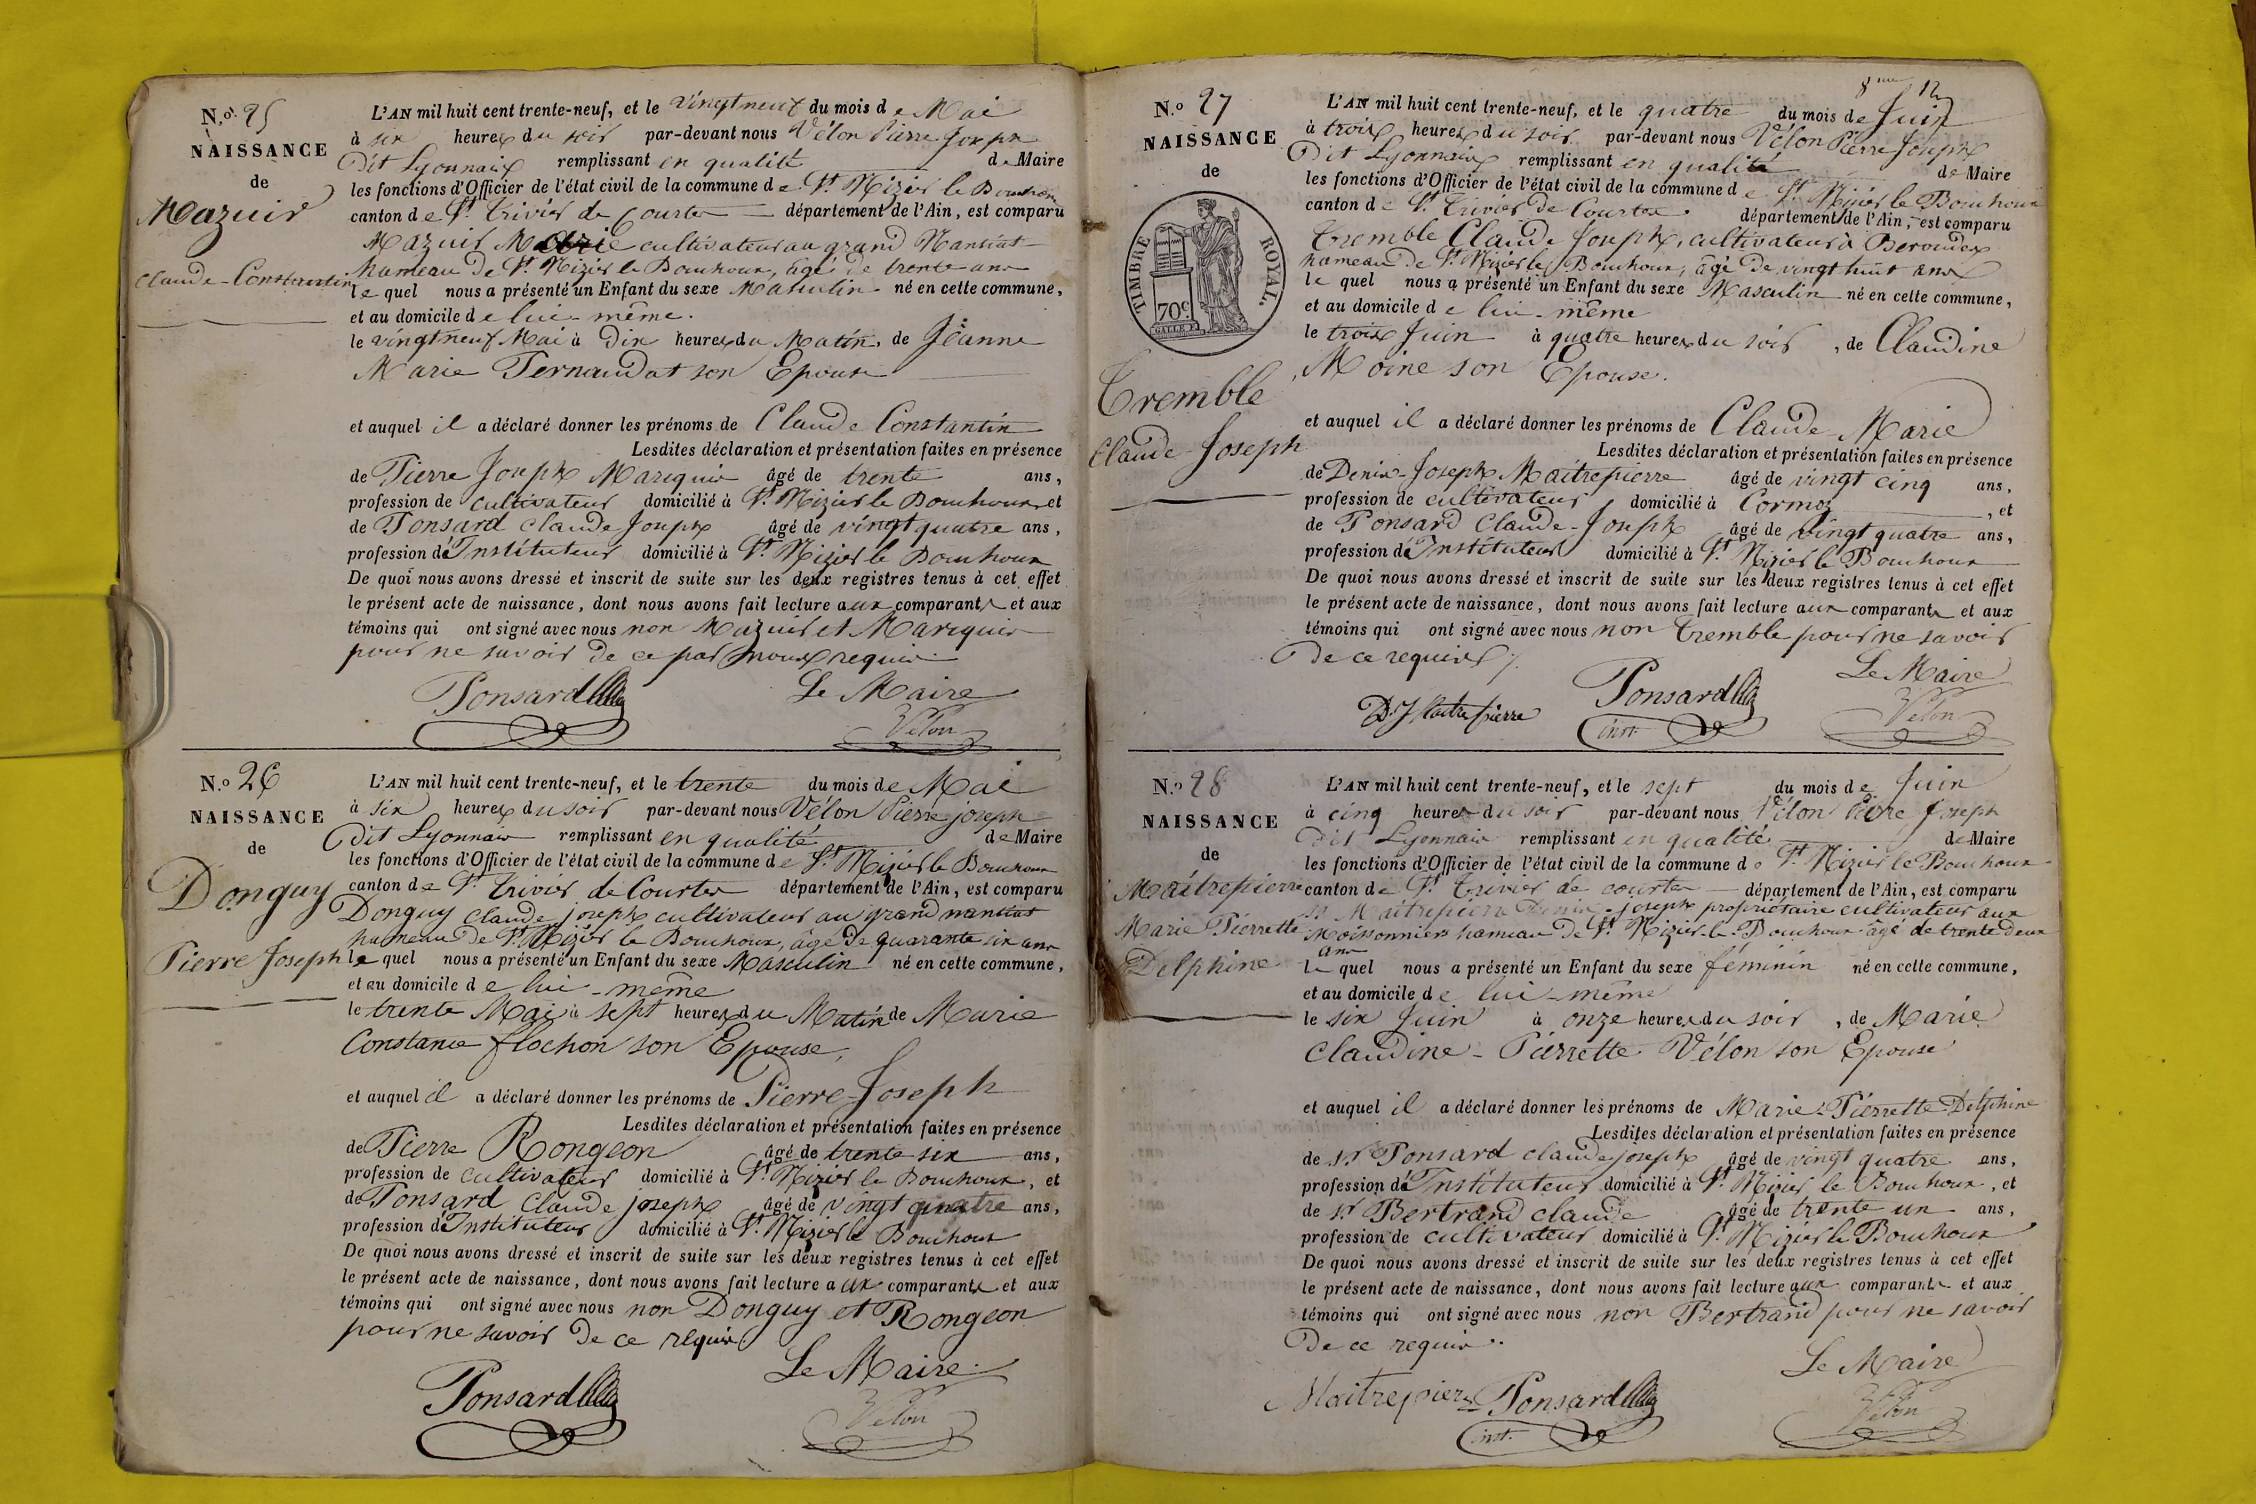 N.º 25
NAISSANCE
de
Mazuir
Claude-Constantin
L'AN mil huit cent trente-neuf, et le vingt neuf du mois de Mai
à six heures du soir par-devant nous Vélon Pierre Joseph
Dit Lyonnais remplissant en qualité de Maire
les fonctions d'Officier de l'état civil de la commune de St Nizier le Bouchoux
canton de St Trivier de Courtes département de l'Ain, est comparu
Mazuir Marie cultivateur au grand Nansiat
hameau de St Nizier le Bouchoux, âgé de trente ans
le quel nous a présenté un Enfant du sexe Masculin né en cette commune,
et au domicile de lui-même.
le vingt neuf Mai à Dix heures du Matin, de Jeanne
Marie Pernaudat son Epouse
et auquel il a déclaré donner les prénoms de Claude Constantin
Lesdites déclaration et présentation faites en présence
de Pierre Joseph Marequis âgé de trente ans,
profession de cultivateur domicilié à St Nizier le Bouchoux et
de Ponsard Claude Joseph âgé de vingt quatre ans,
profession d'Instituteur domicilié à St Nizier le Bouchoux
De quoi nous avons dressé et inscrit de suite sur les deux registres tenus à cet effet
le présent acte de naissance, dont nous avons fait lecture aux comparants et aux
témoins qui ont signé avec nous non Mazuir et Marequis
pour ne savoir de ce par nous requis.
Ponsard Le Maire
Vélon
N.º 26
NAISSANCE
de
Donguy
Pierre Joseph
L'AN mil huit cent trente-neuf, et le trente du mois de Mai
à six heures du soir par-devant nous Vélon Pierre joseph
Dit Lyonnais remplissant en qualité de Maire
les fonctions d'Officier de l'état civil de la commune de St Nizier le Bouchoux
canton de St Trivier de Courtes département de l'Ain, est comparu
Donguy claude joseph cultivateur au grand nansiat
hameau de St Nizier le Bouchoux, âgé de quarante six ans
le quel nous a présenté un Enfant du sexe Masculin né en cette commune,
et au domicile de lui-même
le trente Mai à sept heures du Matin de Marie
Constance flochon son Epouse,
et auquel il a déclaré donner les prénoms de Pierre-Joseph
Lesdites déclaration et présentation faites en présence
de Pierre Rongeon âgé de trente six ans,
profession de cultivateur domicilié à St Nizier le Bouchoux, et
de Ponsard Claude joseph âgé de vingt quatre ans,
profession d'Instituteur domicilié à St Nizier le Bouchoux
De quoi nous avons dressé et inscrit de suite sur les deux registres tenus à cet effet
le présent acte de naissance, dont nous avons fait lecture aux comparants et aux
témoins qui ont signé avec nous non Donguy et Rongeon
pour ne savoir de ce requis
Ponsard Le Maire
Vélon
8me 12
N.º 27
NAISSANCE
de
TIMBRE ROYAL.
70c
Tremble
Claude-Joseph
L'AN mil huit cent trente-neuf, et le quatre du mois de Juin
à trois heures du soir par-devant nous Vélon Pierre Joseph
Dit Lyonnais remplissant en qualité de Maire
les fonctions d'Officier de l'état civil de la commune de St Nizier le Bouchoux
canton de St Trivier de Courtes département de l'Ain, est comparu
Tremble Claude Joseph, cultivateur à Beroudes
hameau de St Nizier le Bouchoux, âgé de vingt huit ans
le quel nous a présenté un Enfant du sexe Masculin né en cette commune,
et au domicile de lui-même
le trois Juin à quatre heures du soir, de Claudine
Moine son Epouse.
et auquel il a déclaré donner les prénoms de Claude-Marie
Lesdites déclaration et présentation faites en présence
de Denis-Joseph Maitrepierre âgé de vingt cinq ans,
profession de cultivateur domicilié à Cormoz, et
de Ponsard Claude-Joseph âgé de vingt quatre ans,
profession d'Instituteur domicilié à St Nizier le Bouchoux
De quoi nous avons dressé et inscrit de suite sur les deux registres tenus à cet effet
le présent acte de naissance, dont nous avons fait lecture aux comparants et aux
témoins qui ont signé avec nous non Tremble pour ne savoir
De ce requis
D. J Maitrepierre Ponsard inst. Le Maire
Vélon
N.º 28
NAISSANCE
de
Maitrepierre
Marie Pierrette
Delphine
L'AN mil huit cent trente-neuf, et le sept du mois de Juin
à cinq heures du soir par-devant nous Vélon Pierre Joseph
Dit Lyonnais remplissant en qualité de Maire
les fonctions d'Officier de l'état civil de la commune de St Nizier le Bouchoux
canton de St Trivier de courtes département de l'Ain, est comparu
Sr Maitrepierre Denis-joseph propriétaire cultivateur aux
Moissonniers hameau de St Nizier-le-Bouchoux âgé de trente deux
ans
le quel nous a présenté un Enfant du sexe féminin né en cette commune,
et au domicile de lui-même
le six Juin à onze heures du soir, de Marie
Claudine-Pierrette Vélon son Epouse
et auquel il a déclaré donner les prénoms de Marie-Pierrette-Delphine
Lesdites déclaration et présentation faites en présence
de Sr Ponsard claude joseph âgé de vingt quatre ans,
profession d'Instituteur domicilié à St Nizier le Bouchoux, et
de Sr Bertrand claude âgé de trente un ans,
profession de cultivateur domicilié à St Nizier le Bouchoux
De quoi nous avons dressé et inscrit de suite sur les deux registres tenus à cet effet
le présent acte de naissance, dont nous avons fait lecture aux comparants et aux
témoins qui ont signé avec nous non Bertrand pour ne savoir
De ce requis.
Maitrepierre Ponsard inst. Le Maire
Vélon